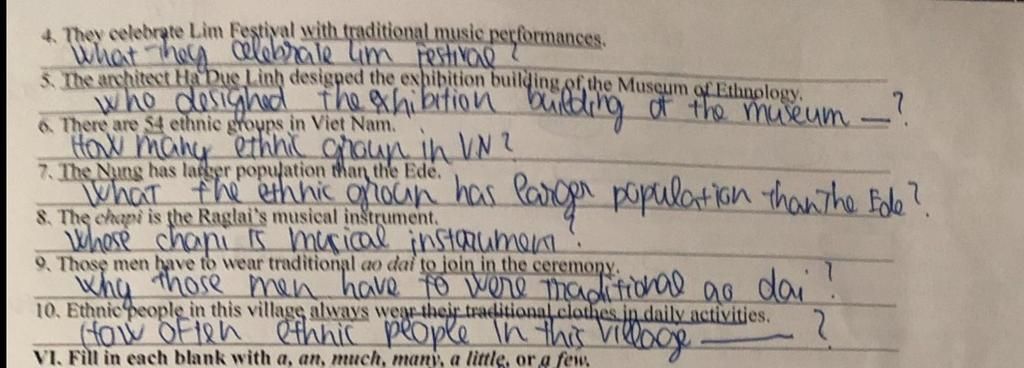 4. They celebrate Lim Festival with traditional music performances.
What they celebrate Lim Festival?
5. The architect Ha Duc Linh designed the exhibition building of the Museum of Ethnology.
Who designed the exhibition building of the museum —?
6. There are 54 ethnic groups in Viet Nam.
How many ethnic group in VN?
7. The Nung has larger population than the Ede.
What the ethnic group has larger population than the Ede?
8. The chapi is the Raglai's musical instrument.
Whose chapi is musical instrument?
9. Those men have to wear traditional ao dai to join in the ceremony.
Why those men have to were traditional ao dai?
10. Ethnic people in this village always wear their traditional clothes in daily activities.
How often ethnic people in this village — ?
VI. Fill in each blank with a, an, much, many, a little, or a few.